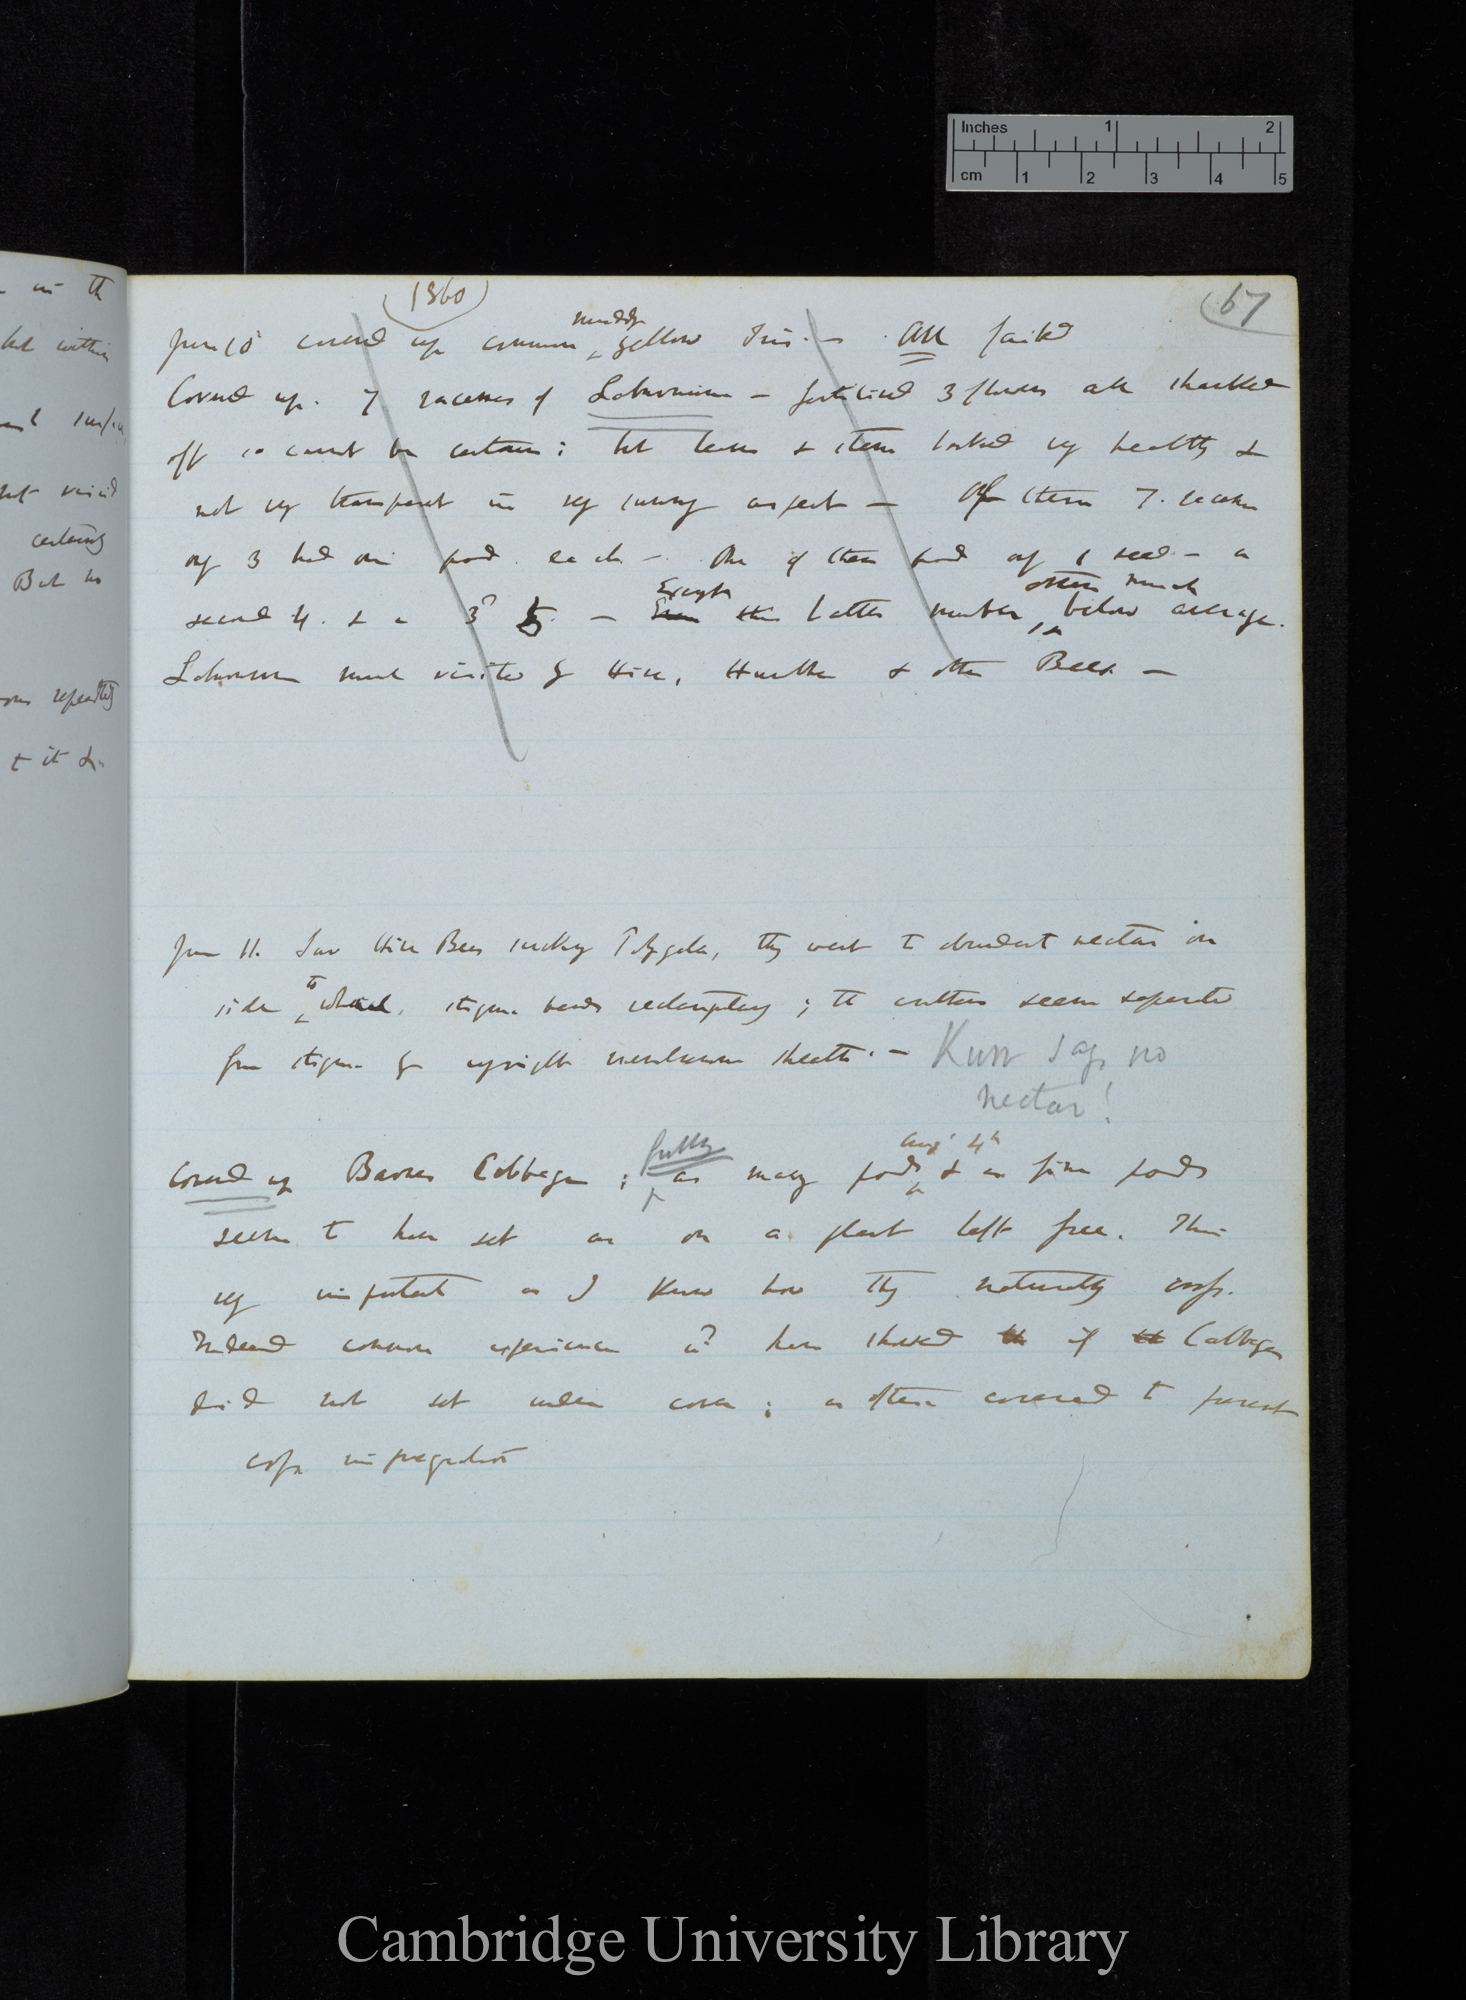 Inches 1 2
cm 1 2 3 4 5
(1860)
67
June 10 covered up common muddy yellow Iris. — All failed
Covered up. 7 racemes of Laburnum — fertilised 3 flowers all shanked
off so cannot be certain; but leaves & stem looked vy healthy &
not vy transparent in vy sunny aspect — Of these 7. racemes
only 3 had one pod each — One of these pod only 1 seed — a
second 4. & a 3d 5. — Except latter number, others much below average.
Laburnum much visited by Hive, Humble & other Bees —
June 11. Saw Hive Bees sucking Polygala, they went to abundant nectar on
side to which, stigma bends ; the anthers seem separated
from stigma by upright membranous sheath. — Kurr says no
nectar!
Covered up Barnes Cabbage ; fully as many pods Aug 4th & as fine pods
seem to have set as on a plant left free. This
vy important as I know how they naturally cross.
Indeed common experience wd have showed if Cabbages
did not set under cover ; as often covered to prevent
cross impregnation
in the
but within
certainly
But no
repeatedly
Cambridge University Library